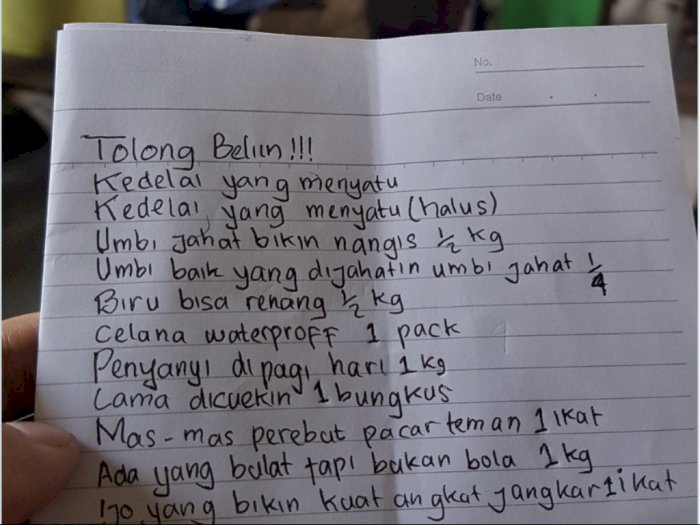 No.
Date
Tolong Beliin!!!
Kedelai yang menyatu
Kedelai yang menyatu (halus)
Umbi jahat bikin nangis 1/2 kg
Umbi baik yang dijahatin umbi jahat 1/4
Biru bisa renang 1/2 kg
Celana waterproff 1 pack
Penyanyi di pagi hari 1 kg
Lama dicuekin 1 bungkus
Mas-mas perebut pacar teman 1 ikat
Ada yang bulat tapi bukan bola 1 kg
Ijo yang bikin kuat angkat jangkar 1 ikat